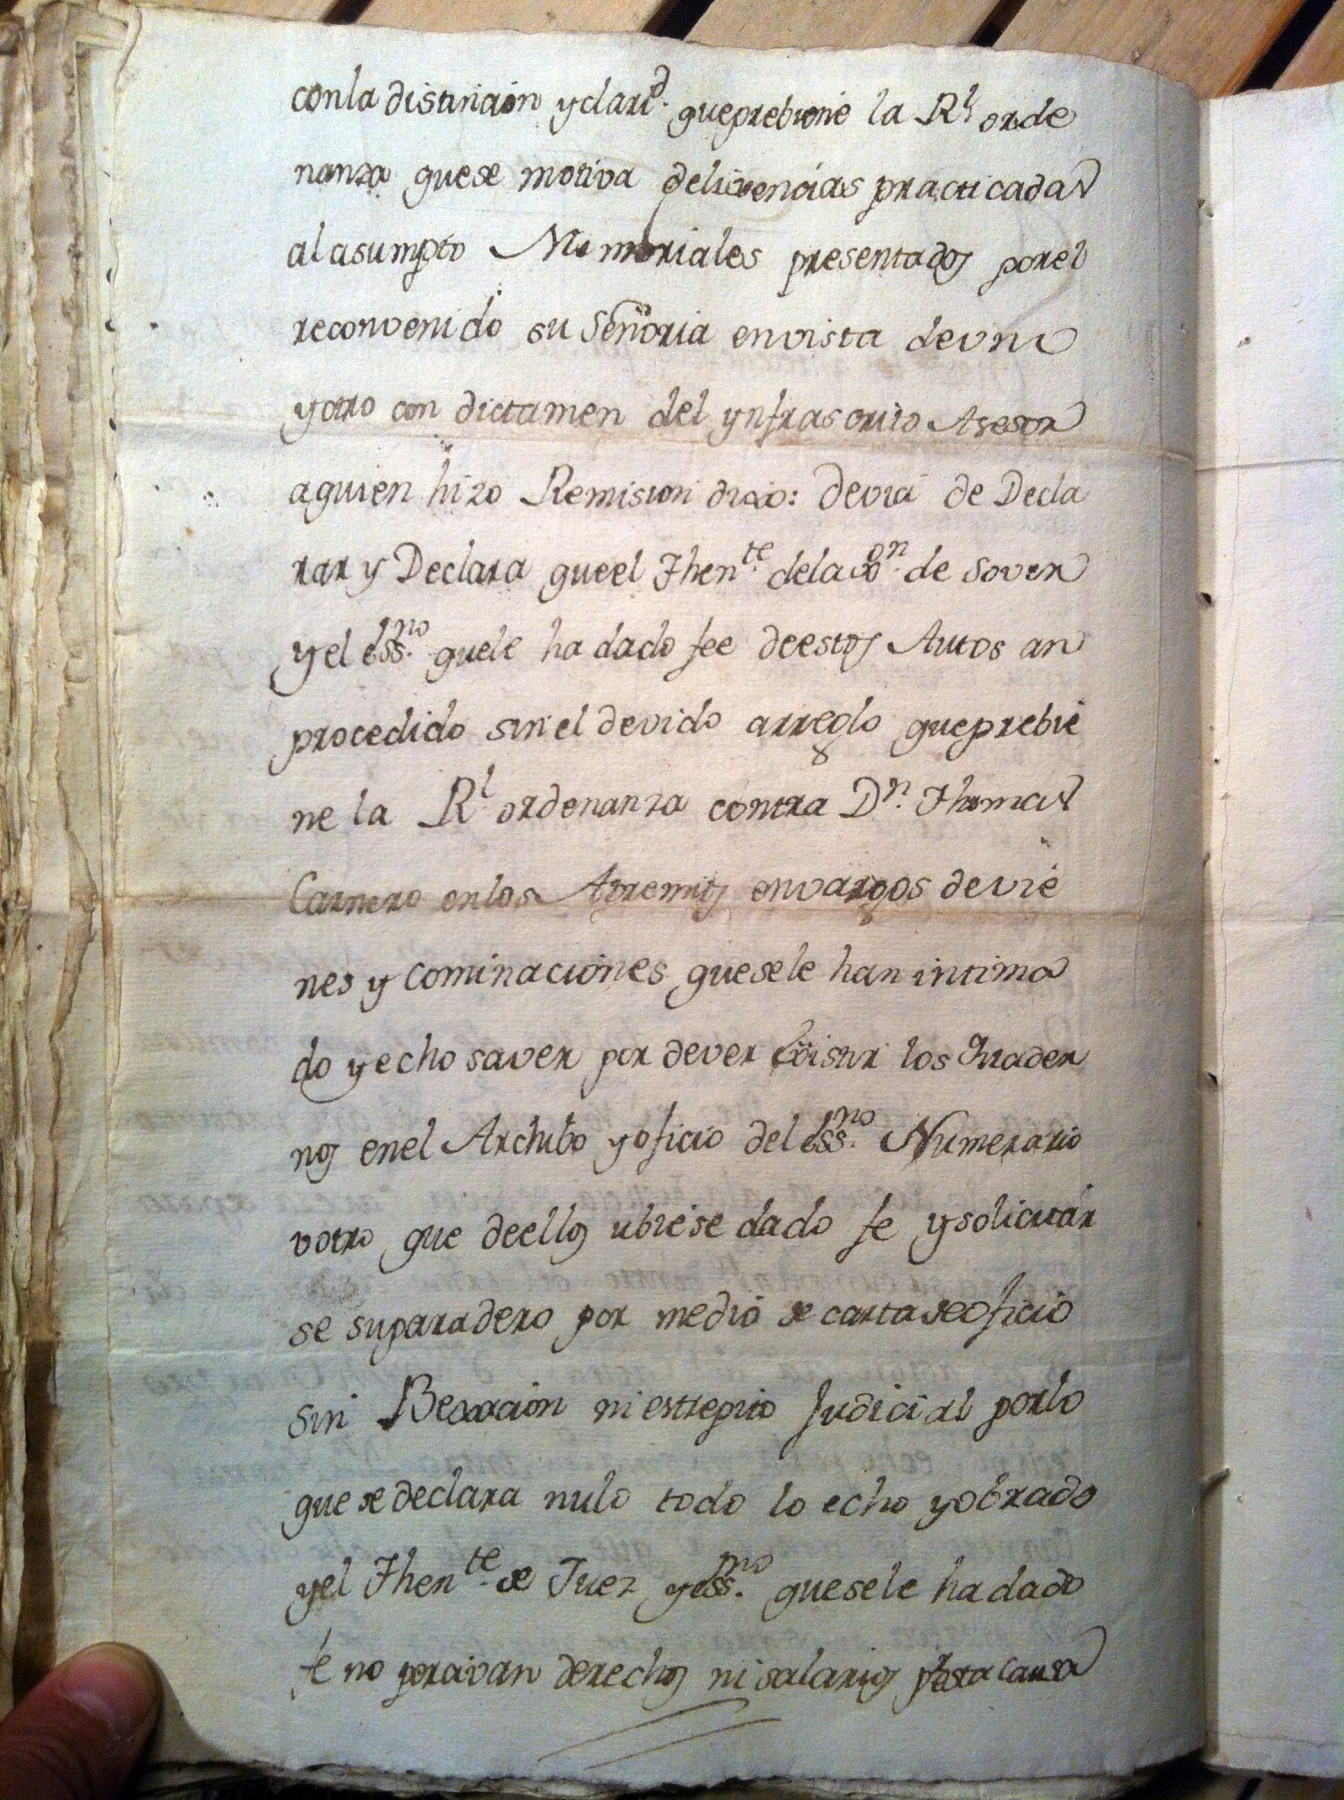 conla distincion y clarid. queprebiene la Rl orde
nanza quese motiva delivencias practicadas
al asumpto Memoriales presentados porel
reconvenido su Señoria envista deuno
y otro con dictamen del ynfrascrito Asesor
aquien hizo Remision dixo: devia de Decla
rar y Declara queel Thente. dela de Sover
y el essno. quele ha dado fee deestos Autos an
procedido sin el devido arreglo queprebie
ne la Rl ordenanza contra Dn. Thomas
Carnero enlos Apremios envargos devie
nes y cominaciones quesele han intima
do y echo saver por dever existir los Quader
nos enel Archibo y oficio del essno. Numerario
votro que deellos ubiese dado fe y solicitar
se suparadero por medio de carta deoficio
sin Bexacion ni estrepito Judicial porlo
que se declara nulo todo lo echo y obrado
y el Thente. de Juez y essno. quesele ha dado
fe no derechos ni salarios causa